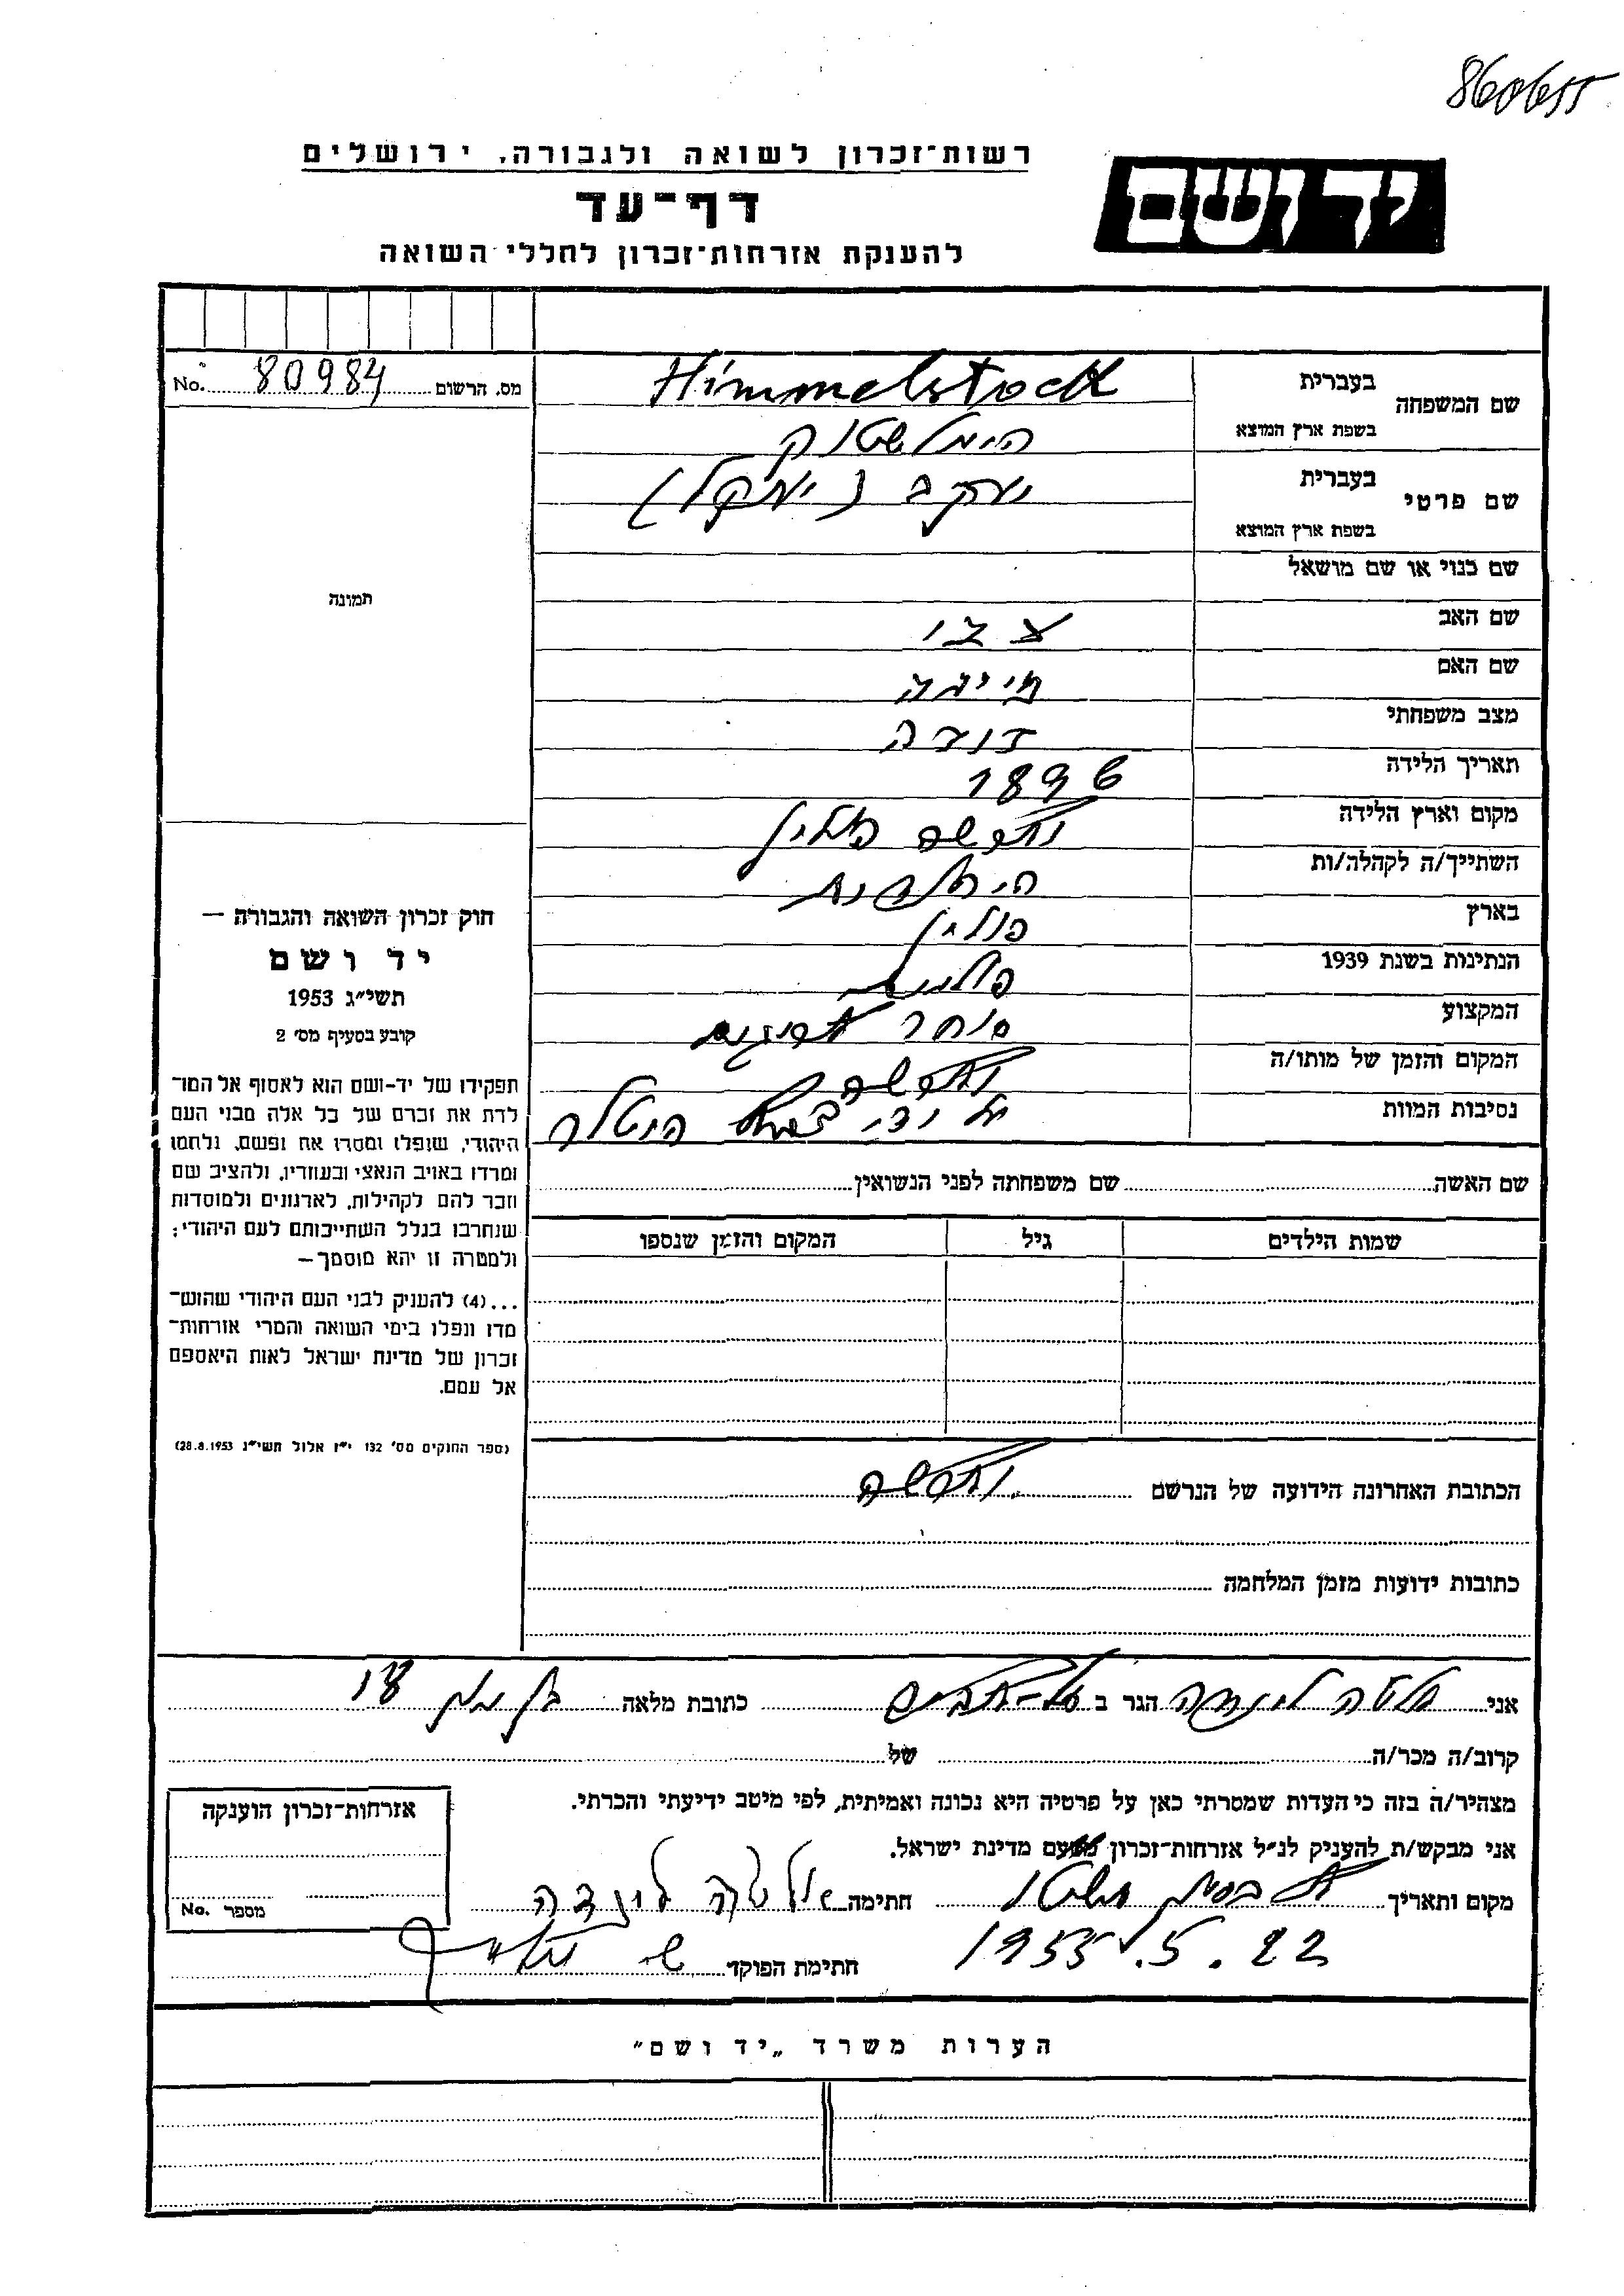 860655
רשות־זכרון לשואה ולגבורה, ירושלים
יד ושם
דף־עד
להענקת אזרחות־זכרון לחללי השואה
מס. הרשום 80984 No.
שם המשפחה
בעברית Himmelstock
בשפת ארץ המוצא הימלשטוק
שם פרטי
בעברית יעקב (ינקל)
בשפת ארץ המוצא
תמונה
שם כנוי או שם מושאל
שם האב צבי
שם האם חיינה
מצב משפחתי
תאריך הלידה 1896
מקום וארץ הלידה ווארשה פולין
השתייך/ה לקהלה/ות
בארץ פולין
הנתינות בשנת 1939 פולנית
המקצוע סוחר
המקום והזמן של מותו/ה ווארשה
נסיבות המוות על ידי היטלר
חוק זכרון השואה והגבורה —
יד ושם
תשי״ג 1953
קובע בסעיף מס׳ 2
תפקידו של יד-ושם הוא לאסוף אל המו־
לדת את זכרם של כל אלה מבני העם
היהודי, שנפלו ומסרו את נפשם, נלחמו
ומרדו באויב הנאצי ובעוזריו, ולהציב שם
וזכר להם לקהילות, לארגונים ולמוסדות
שנחרבו בגלל השתייכותם לעם היהודי;
ולמטרה זו יהא מוסמך—
...(4) להעניק לבני העם היהודי שהוש־
מדו ונפלו בימי השואה והמרי אזרחות־
זכרון של מדינת ישראל לאות היאספם
אל עמם.
(ספר החוקים מס׳ 132 י״ז אלול תשי״ג 28.8.1953)
שם האשה שם משפחתה לפני הנשואין
שמות הילדים גיל המקום והזמן שנספו
הכתובת האחרונה הידועה של הנרשם ווארשה
כתובות ידועות מזמן המלחמה
אני הגר ב תל-אביב כתובת מלאה
קרוב/ה מכר/ה של
מצהיר/ה בזה כי העדות שמסרתי כאן על פרטיה היא נכונה ואמיתית, לפי מיטב ידיעתי והכרתי.
אני מבקש/ת להעניק לנ״ל אזרחות־זכרון מטעם מדינת ישראל.
מקום ותאריך חתימה
22.5.1955 חתימת הפוקד
אזרחות־זכרון הוענקה
מספר No.
הערות משרד „יד ושם״